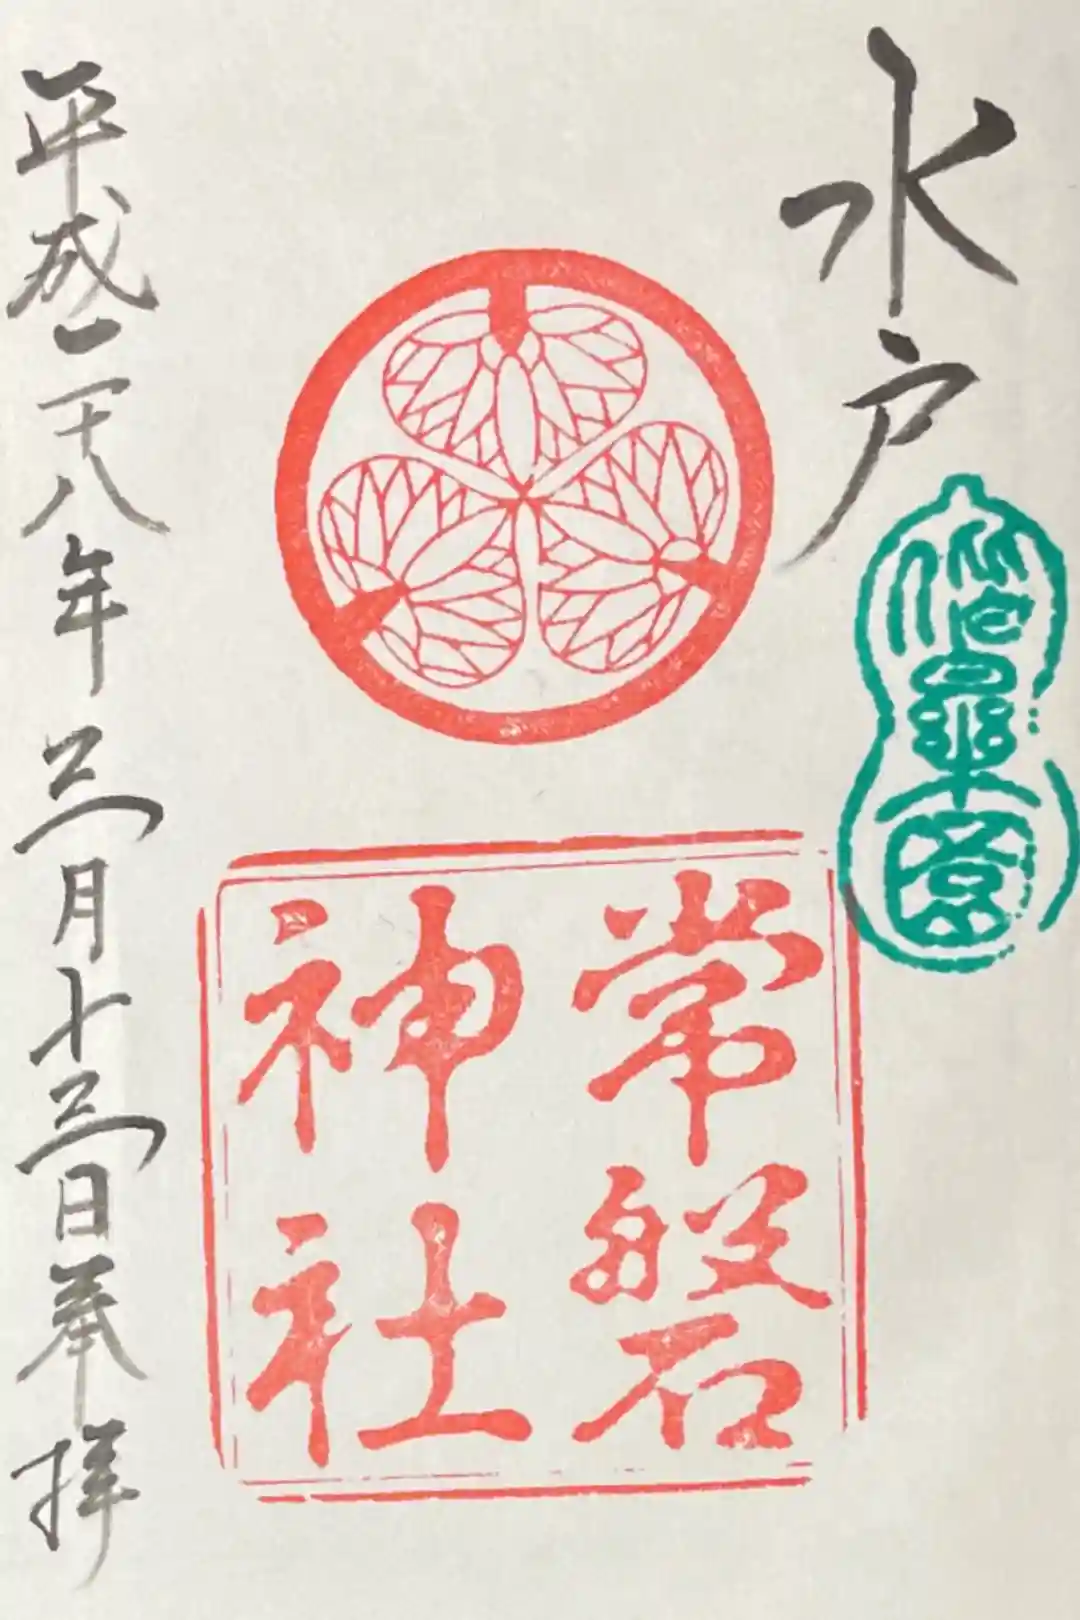 水戸
偕樂園
常磐
神社
平成二十八年三月十三日奉拝